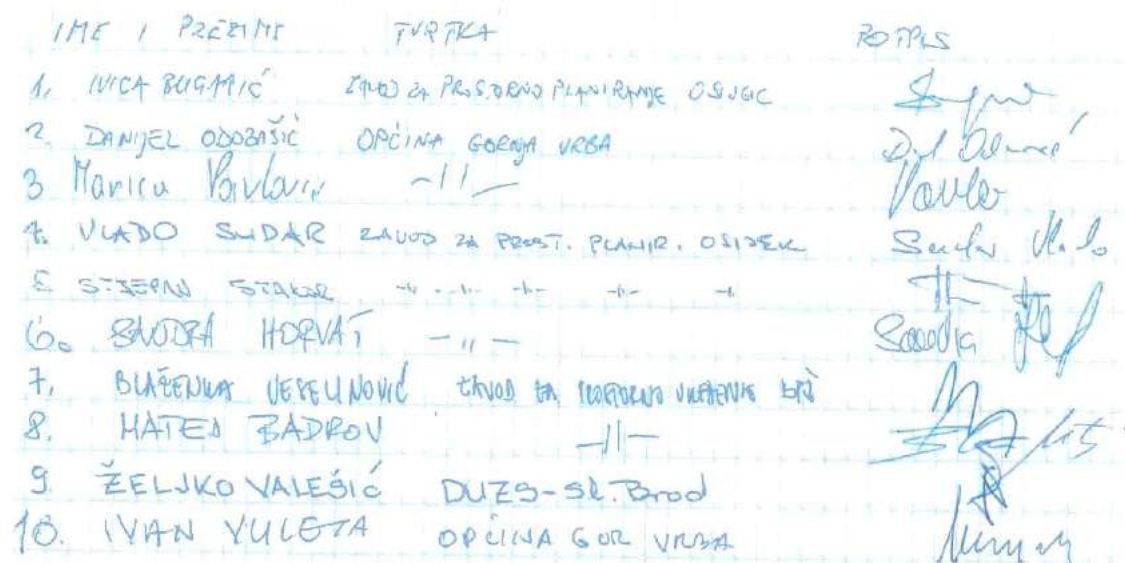 IME I PREZIME TVRTKA POTPIS
1. IVICA BUGARIĆ ZAVOD ZA PROSTORNO PLANIRANJE OSIJEK
2. DANIJEL ODOBAŠIĆ OPĆINA GORNJA VRBA
3 Marica Pavlović -||-
4. VLADO SUDAR ZAVOD ZA PROST. PLANIR. OSIJEK Sudar Vlado
5. STJEPAN STAKOR -||- -||- -||- -||- -||-
6. SANDRA HORVAT -||- Sandra
7. BLAŽENKA VESELINOVIĆ ZAVOD ZA PROSTORNO UREĐENJE BPŽ
8. MATEJ BADROV -||-
9. ŽELJKO VALEŠIĆ DUZS-SL. Brod
10. IVAN VULETA OPĆINA GOR VRBA